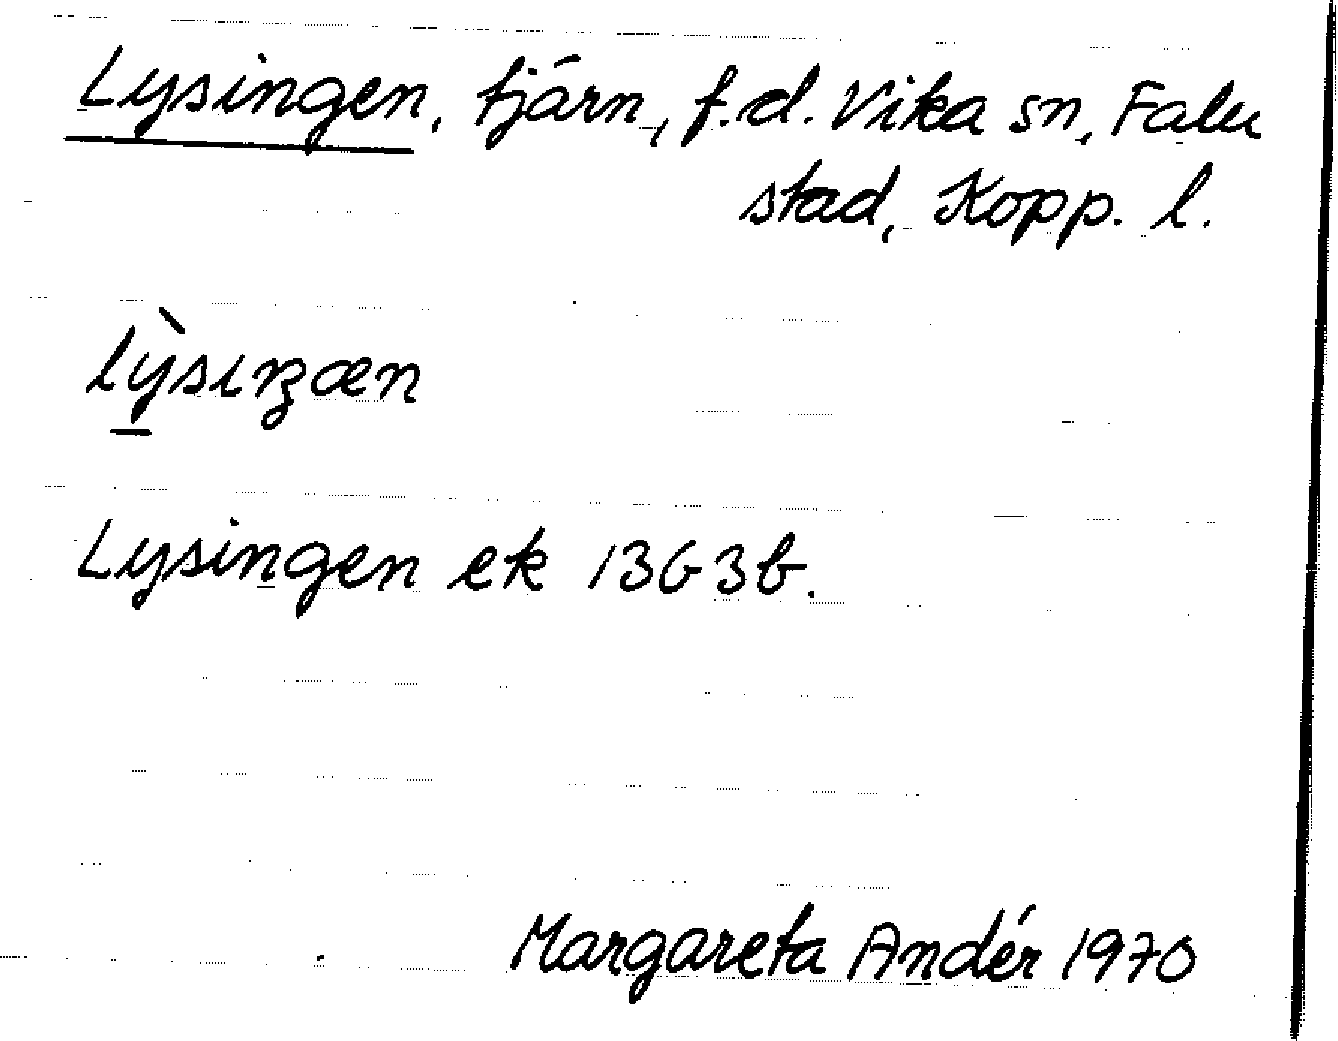 Lysingen, tjärn, f.d. Vika sn, Falu
stad, Kopp. l.
lỳsıŋæn
Lysingen ek 13G3b.
Margareta Andér 1970